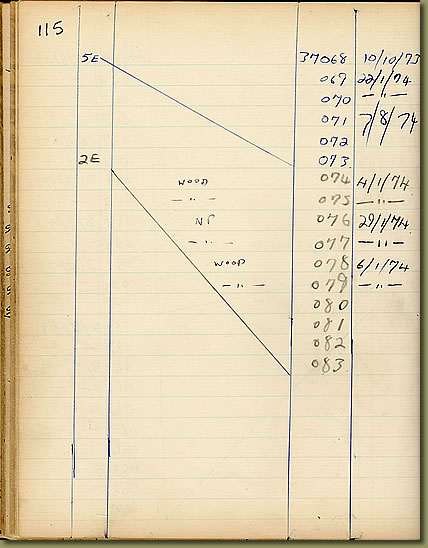 115
5E 37068 10/10/73
069 22/1/74
070 — " —
071 7/8/74
072
2E 073
WOOD 074 4/1/74
— " — 075 — " —
NP 076 29/1/74
— " — 077 — " —
WOOD 078 6/1/74
— " — 079 — " —
080
081
082
083